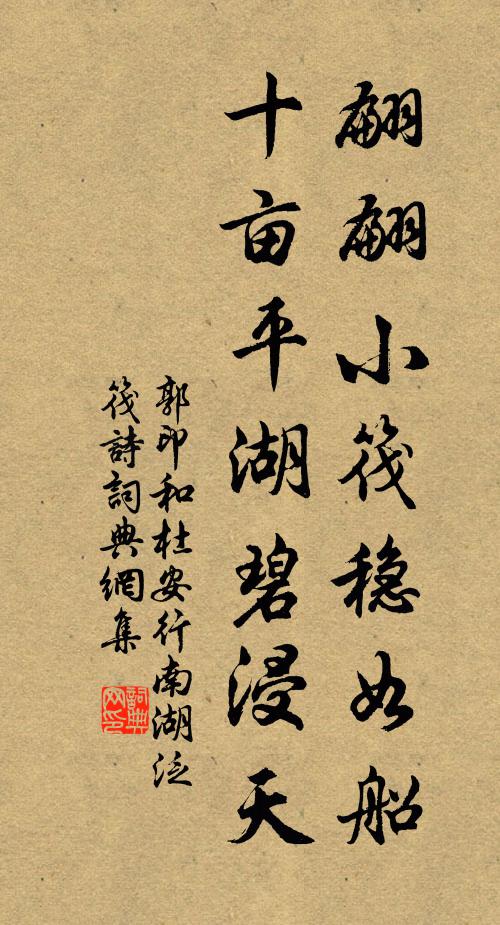 翩翩小筏稳如船
十亩平湖碧浸天
郭印和杜安行南湖泛
筏詩詞典網集
詞典网印